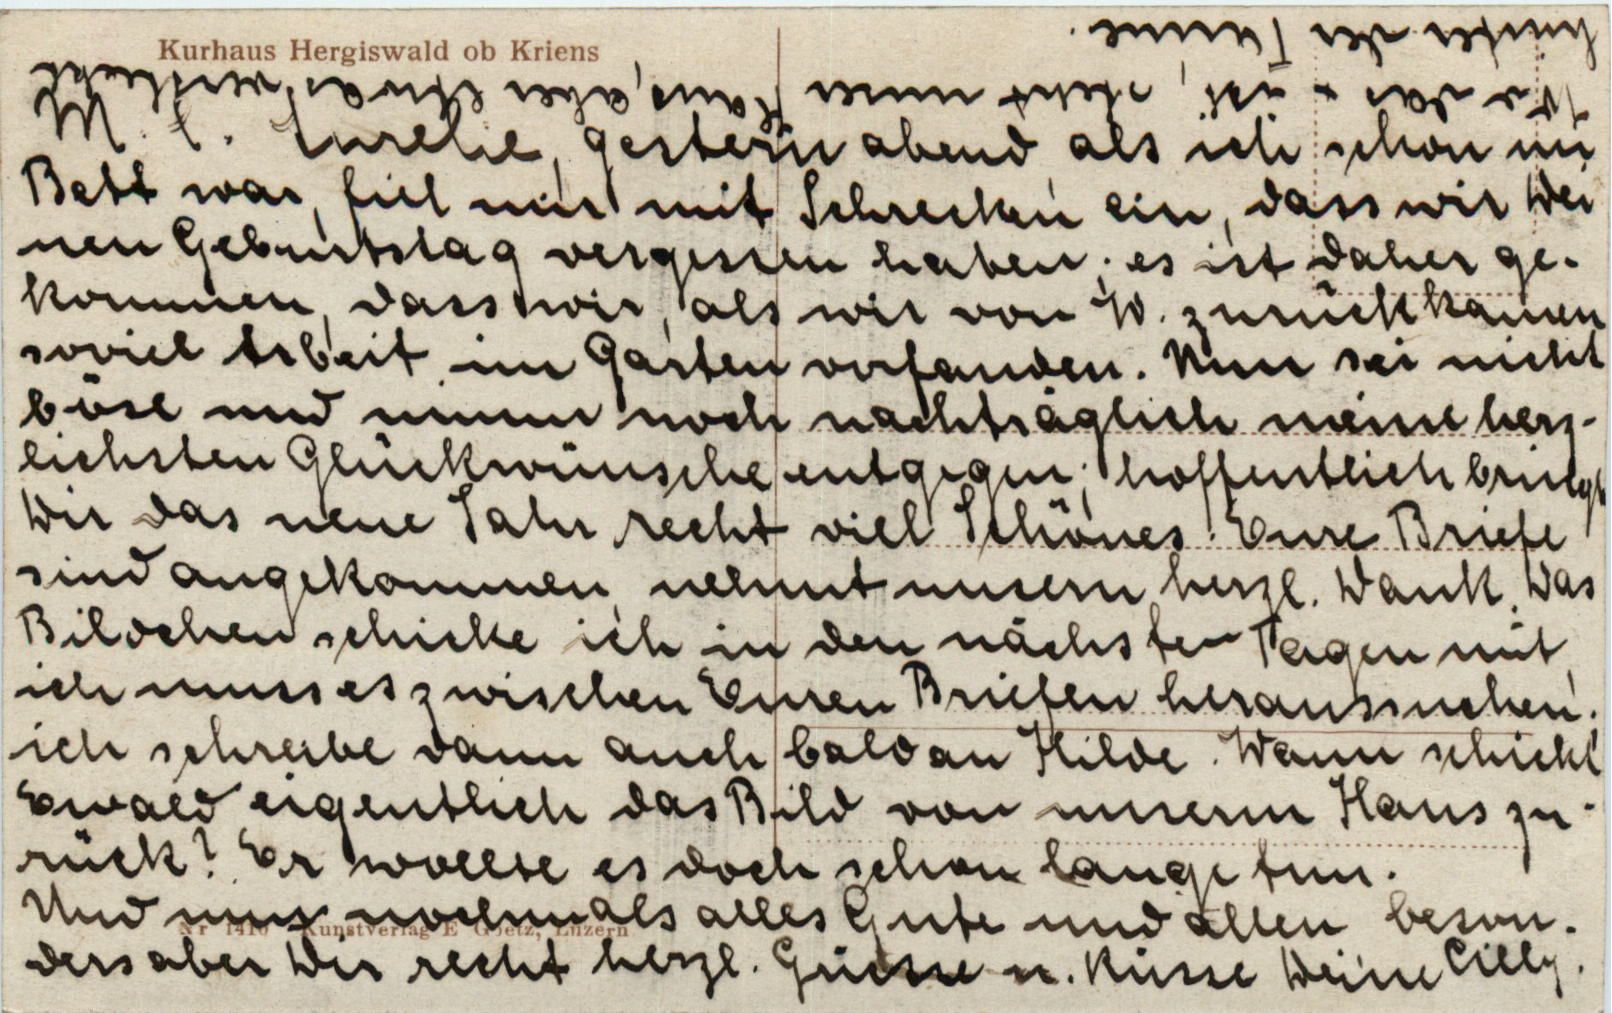 Kurhaus Hergiswald ob Kriens
Wo das + ist, steht unser Haus, aber etwas versteckt
hinter der Tanne.
M. l. Aurelie, gestern abend als ich schon im
Bett war, fiel mir mit Schrecken ein, dass wir Dei
nen Geburtstag vergessen haben; es ist daher ge-
kommen, dass wir, als wir von W. zurückkamen
soviel Arbeit im Garten vorfanden. Nun sei nicht
böse und nimm noch nachträglich meine herz-
lichsten Glückwünsche entgegen; hoffentlich bringt
Dir das neue Jahr recht viel Schönes! Eure Briefe
sind angekommen, nehmt unsern herzl. Dank. Das
Bildchen schicke ich in den nächsten Tagen mit,
ich muss es zwischen Euren Briefen heraussuchen;
ich schreibe dann auch bald an Hilde. Wann schickt
Ewald eigentlich das Bild von unserm Haus zu-
rück? Er wollte es doch schon lange tun.
Und nun nochmals alles Gute und allen beson-
ders aber Dir recht herzl. Grüsse u. Küsse Deine Cilly.
Nr 1410 Kunstverlag E Goetz, Luzern